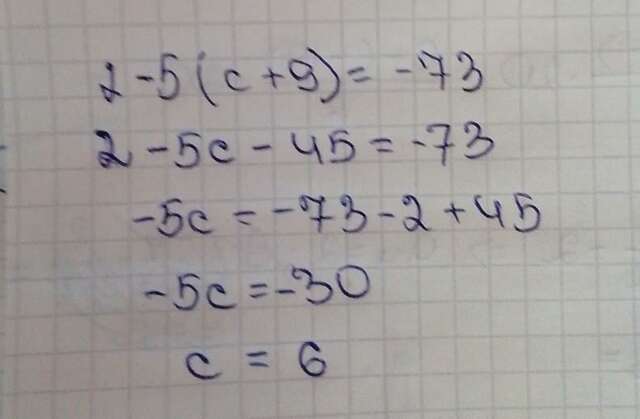 2-5(c+9)=-73
2-5c-45=-73
-5c=-73-2+45
-5c=-30
c=6